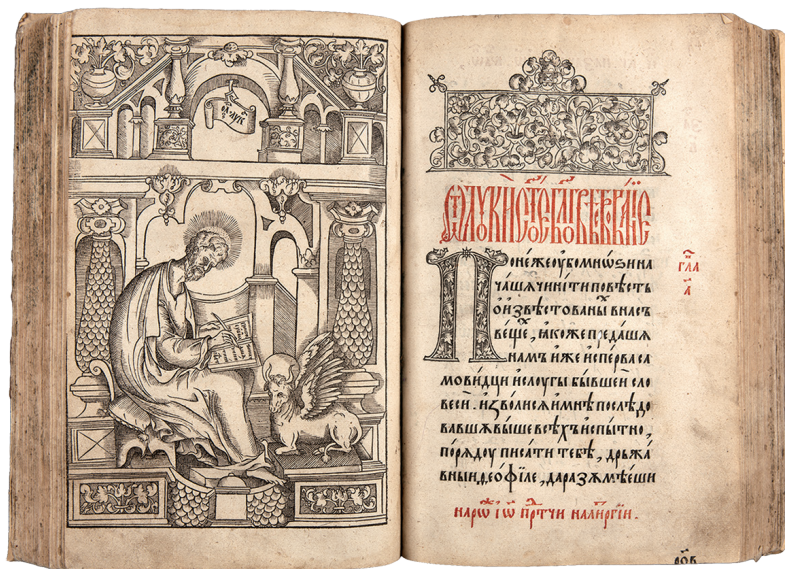 Ѿ лꙋки ст҃ое бл҃говѣствованїе
Поне́же оу҆бо мно́ѕи на
ча́шѧ чини́ти по́вѣсть
о и҆звѣ́стованыⷯ в на́съ
ве́щеⷯ, ꙗ҆ко́же пре́даша
на́мъ и҆́же и҆спе́рва са
мови́дци и҆ слоугы̀ бы́вшеи сло
весѝ. и҆зво́лисѧ и҆ мнѣ̀ послѣ́до
ва́вшꙋ вы́ше всѣ́хъ и҆спы́тно,
по́рѧдоу писа́ти тебѣ̀, дрьжа́
вныи ѳео́фїле, да разꙋмѣ́еши
гла҃
а҃
на роⷤ і҆ѡⷩ҇ прⷣтчи на лиⷮргїи.